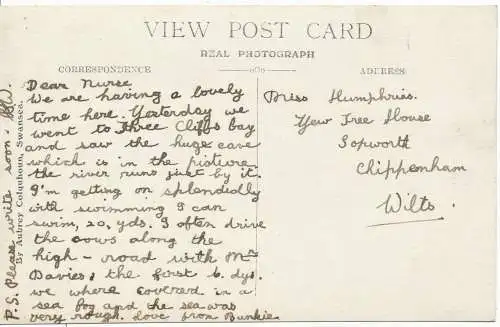 VIEW POST CARD
REAL PHOTOGRAPH
CORRESPONDENCE
ADDRESS.
Dear Nurse
We are having a lovely
time here. Yesterday we
went to Three Cliffs bay
and saw the huge cave
which is in the picture
the river runs just by it.
I'm getting on splendidly
with swimming I can
swim, 20, yds. I often drive
the cows along the
high-road with Mrs
Davies, the first 6. dys.
we where covered in a
sea fog and the sea was
very rough. Love from Bunkie.
P.S. Please write soon.
By Aubrey Colquhoun, Swansea.
Miss Humphries.
Yew Tree House
Sopworth
Chippenham
Wilts.